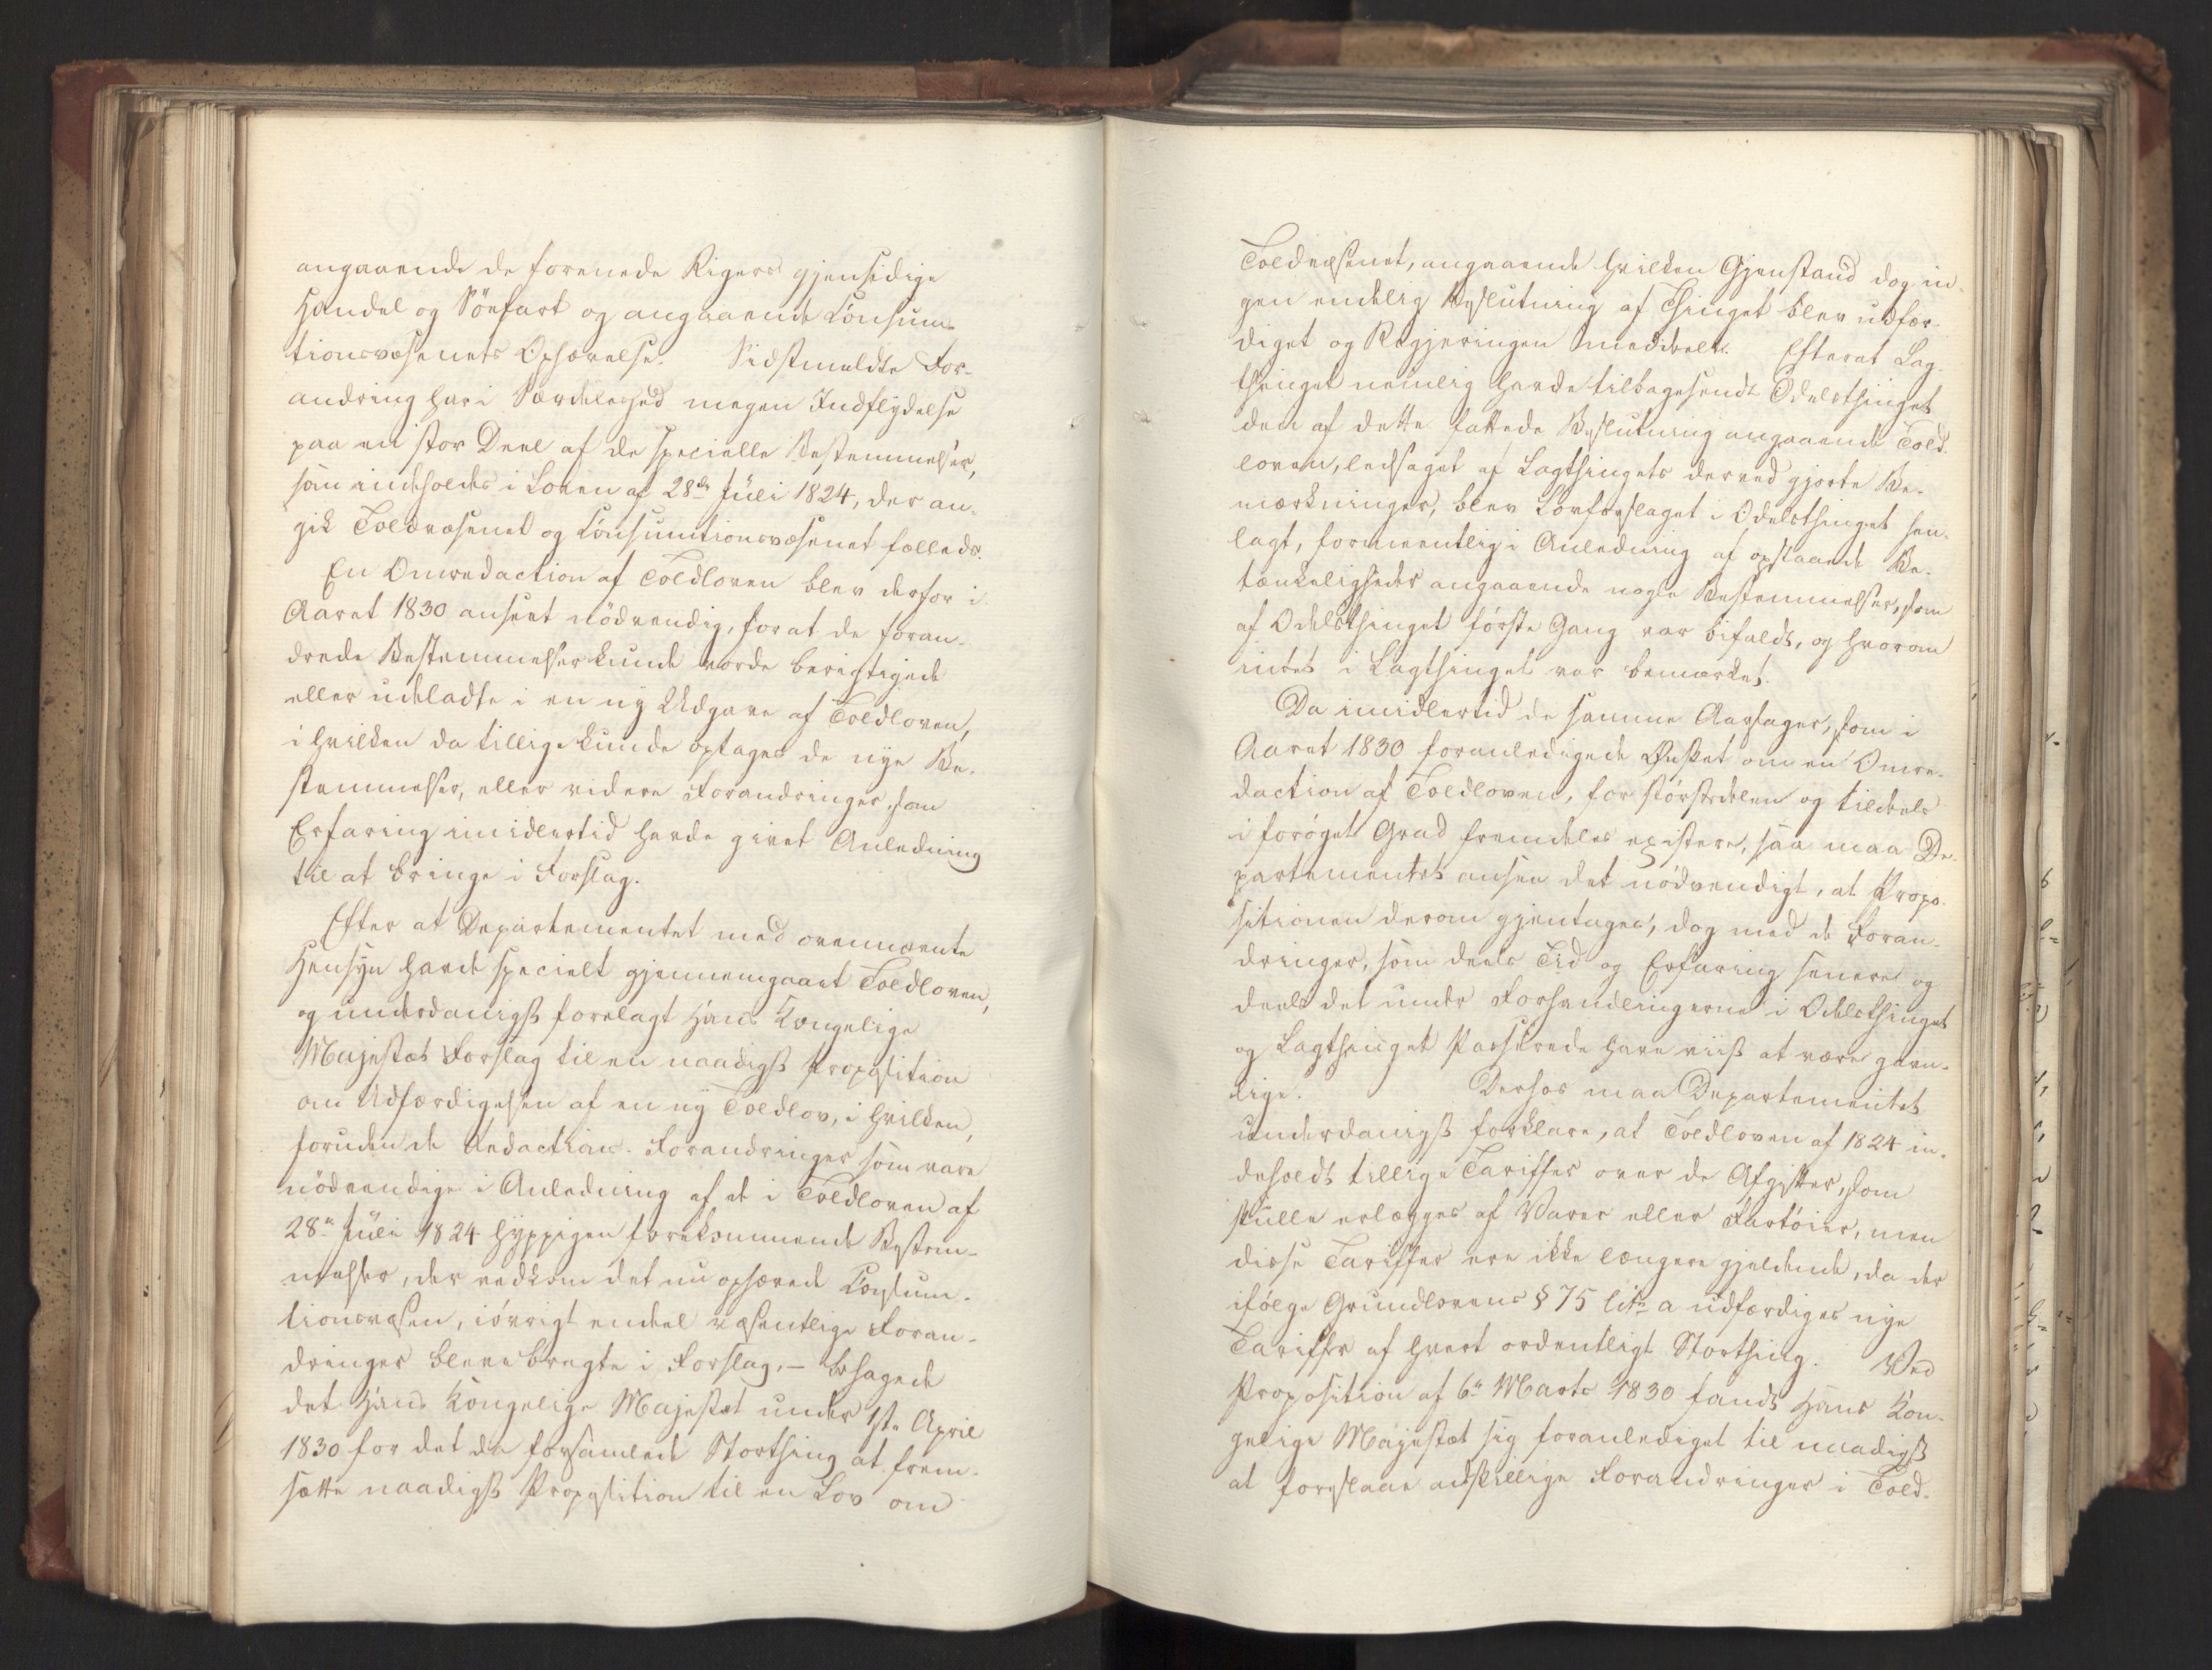 angaaende de forenede Rigers gjensidige
Handel og Söefart og angaaende Consum-
tionsvæsenets Ophævelse. Sidstmeldte For-
andring har i Særdeleshed megen Indflydelse
paa en stor Deel af de specielle Bestemmelser,
som indeholdes i Loven af 28de Juli 1824, der an-
gik Toldvæsenet og Consumtionsvæsenet fælleds.
En Omredaction af Toldloven blev derfor i
Aaret 1830 anseet nödvendig, forat de foran-
drede Bestemmelser kunde vorde berigtigede
eller udeladte i en ny Udgave af Toldloven,
i hvilken da tillige kunde optages de nye Be-
stemmelser, eller videre Forandringer, som
Erfaring imidlertid havde givet Anledning
til at bringe i Forslag.
Efter at Departementet med ovennævnte
Hensyn havde specielt gjennemgaaet Toldloven,
og underdanigst forelagt Hans Kongelige
Majestæt Forslag til en naadigst Proposition
om Udfærdigelsen af en ny Toldlov, i hvilken,
foruden de Redactions-Forandringer som vare
nödvendige i Anledning af de i Toldloven af
28de Juli 1824 hyppigen forekommende Bestem-
melser, der vedkom det nu ophævede Consum-
tionsvæsen, iövrigt endeel væsentlige Foran-
dringer bleve bragte i Forslag, – behagede
det Hans Kongelige Majestæt under 1ste April
1830 for det da forsamlede Storthing at frem-
sætte naadigst Proposition til en Lov om
Toldvæsenet, angaaende hvilken Gjenstand dog in-
gen endelig Beslutning af Thinget blev udfær-
diget og Regjeringen meddeelt. Efterat Lag-
thinget nemlig havde tilbagesendt Odelsthinget
den af dette fattede Beslutning angaaende Told-
loven, ledsaget af Lagthingets derved gjorte Be-
mærkninger, blev Lovforslaget i Odelsthinget hen-
lagt, formeentlig i Anledning af opstaaede Be-
tænkeligheder angaaende nogle Bestemmelser, som
af Odelsthinget förste Gang var bifaldt, og hvorom
intet i Lagthinget var bemærket.
Da imidlertid de samme Aarsager, som i
Aaret 1830 foranledigede Ønsket om en Omre-
daction af Toldloven, for störstedelen og tildeels
i forøget Grad fremdeles existere, saa maa De-
partementet ansee det nödvendigt, at Propo-
sitionen derom gjentages, dog med de Foran-
dringer, som deels Tid og Erfaring senere og
deels det under Forhandlingerne i Odelsthinget
og Lagthinget Passerede have viist at være gavn-
lige. Derhos maa Departementet
underdanigst forklare, at Toldloven af 1824 in-
deholdt tillige Tariffer over de Afgifter, som
skulle erlægges af Varer eller Fartöier, men
disse Tariffer ere ikke længere gjeldende, da der
ifölge Grundlovens § 75 litr. a udfærdiges nye
Tariffer af hvert ordentligt Storthing. Ved
Proposition af 6te Marts 1830 fandt Hans Kon-
gelige Majestæt sig foranlediget til naadigst
at foreslaae adskillige Forandringer i Told-